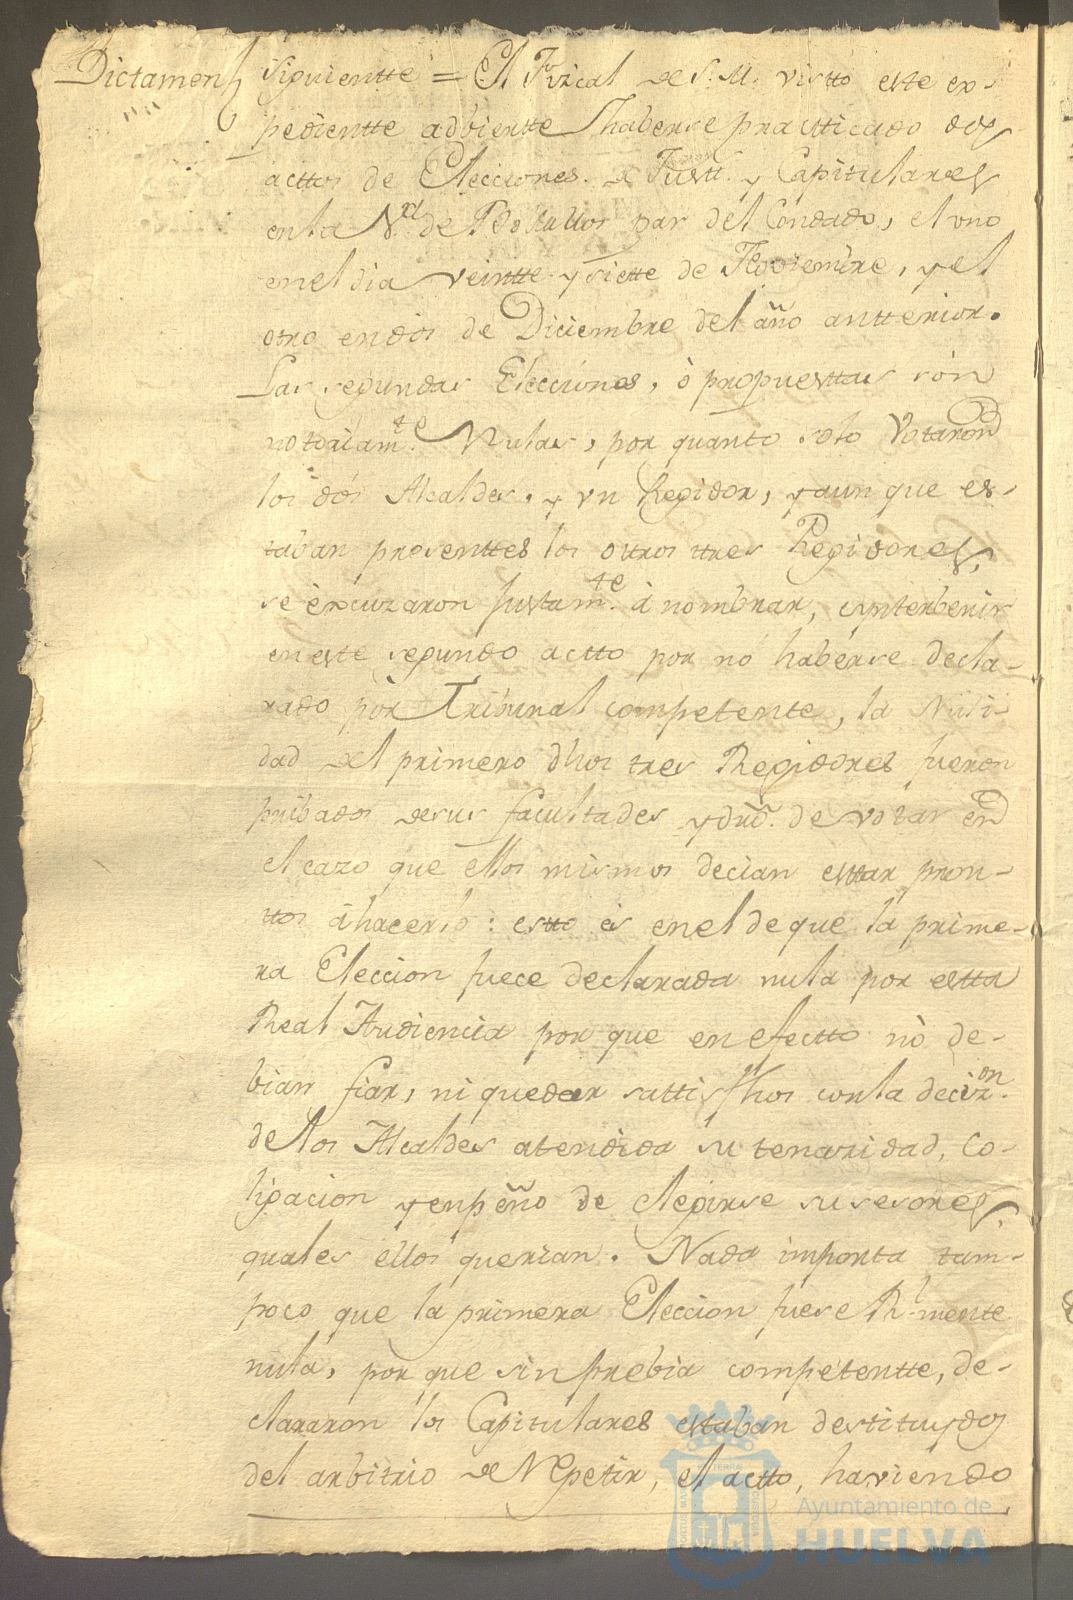 Dictamen
siguientte = El Fizcal de S. M. vistto este ex-
pedientte adbiertte haberse practticado dos
acttos de Elecciones de Justt.ª y Capitulares
en la V.ª de Bollullos par del Condado, el uno
en el dia veintte y siette de Noviembre, y el
otro en dos de Diciembre del año antterior.
Las segundas Elecciones, ò propuesttas són
notoriam.te Nulas, por quanto solo Votaron
los dós Alcaldes, y un Regidor, y aun que es-
taban presenttes los ottros ttres Regidores,
se èxcuzaron justam.te á nombrar, è ynterbenir
en este segundo actto por nó haberse decla-
rado por Tribunal competente, la Nuli-
dad del primero dhos tres Regidores fueron
pribados de sus facultades y dró. de votar en
el cazo que ellos mismos decian esttar pron-
ttos á hacerlo: estto és en el de que la prime-
ra Eleccion fuece declarada nula por estta
Real Audiencia por que en efectto nó de-
bian fiar, ni quedar sattisfhos con la decis.on
de los Alcaldes atendida su tenazidad, Co-
ligacion y enpeño de elegirse susesores
quales ellos querian. Nada importa tam-
poco que la primera Eleccion fuese R.l mente
nula, por que sin prebia competentte, de-
clararon los Capitulares estaban destituydos
del arbitrio de Repetir, el actto, haviendo
Ayuntamiento de
HUELVA